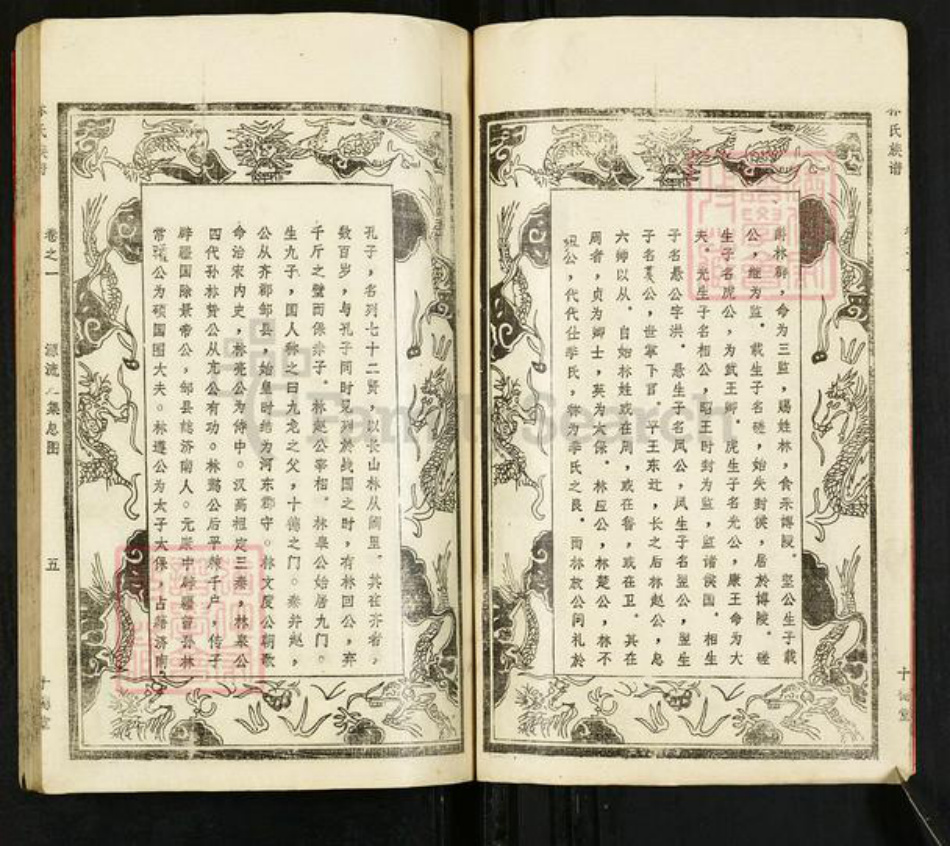 林氏族谱
爵林郡，命为三监，赐姓林，食禾博陵。坚公生子载
公，继为监。载生子名磋，始失封侯，居於博陵。磋
生子名虎公，为武王卿。虎生子名光公，康王命为大
夫。光生子名相公，昭王时封为监，监诸侯国。相生
子名恳公字洪。恳生子名凤公，凤生子名翌公，翌生
子名公，世掌下官。平王东迁，长之后林赵公，息
六帅以从。自始林姓或在周，或在鲁，或在卫。其在
周者，贞为卿士，英为太保。林应公，林楚公，林不
狃公，代代仕季氏，称为季氏之良。而林放公问礼於
孔子，名列七十二贤，以长山林从阙里。其在齐者，
数百岁，与孔子同时见列於战国之时，有林回公，弃
千斤之璧而保赤子。林赵公宰相。林皋公始居九门。
生九子，国人称之曰九龙之父，十德之门。秦并赵，
公从齐郡邹县，始皇时结为河东郡守。林文度公朝歌
命治宋内史，林亮公为侍中。汉高祖定三秦，林皋公
四代孙林贽公从亢公有功。林鹜公后平棘千户，传子
辟疆国除景帝公，邹县鹅济南人。元寀中辟疆曾孙林
常公为硕国图大夫。林遵公为太子太保，占籍济南
氏族谱
卷之一
源流之集总图
五